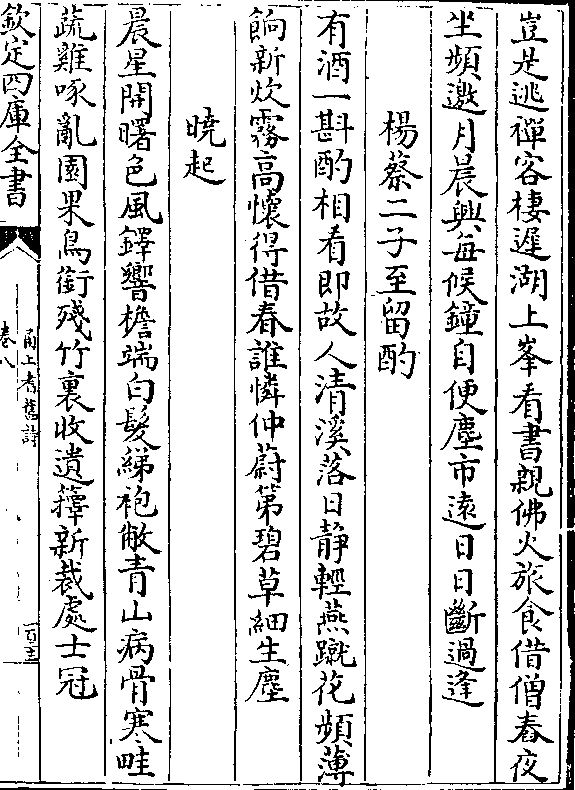 豈是逃禪客棲遲湖上峯看書親佛火旅食借僧舂夜
坐頻邀月晨興每候鐘自便塵市遠日日斷過逢
楊蔡二子至留酌
有酒一斟酌相看即故人清溪落日静輕燕蹴花頻薄
餉新炊霧高懷得借春誰憐仲蔚第碧草細生塵
曉起
晨星開曙色風鐸響檐端白髮綈袍敝青山病骨寒畦
蔬雞啄亂園果鳥銜殘竹裏收遺籜新裁處士冠
欽定四庫全書
甬上耆舊詩
卷八